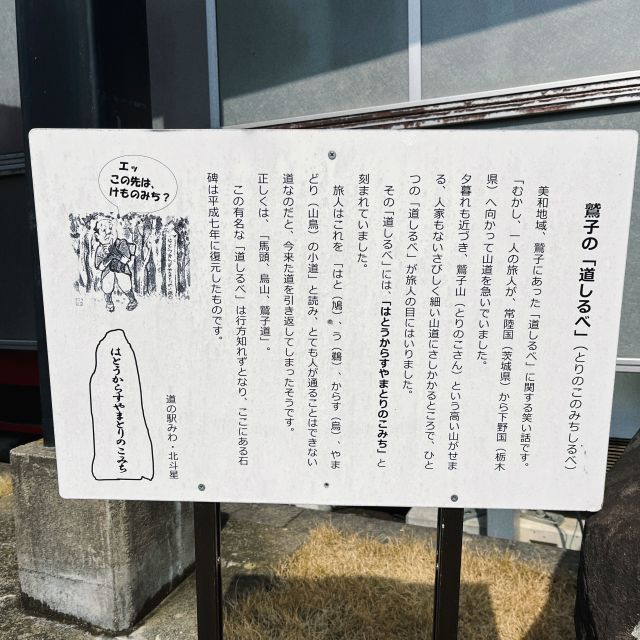 鷲子の「道しるべ」(とりのこのみちしるべ)
美和地域、鷲子にあった「道しるべ」に関する笑い話です。
「むかし、一人の旅人が、常陸国(茨城県)から下野国(栃木
県)へ向かって山道を急いでいました。
夕暮れも近づき、鷲子山(とりのこさん)という高い山がせま
る、人家もないさびしく細い山道にさしかかるところで、ひと
つの「道しるべ」が旅人の目にはいりました。
その「道しるべ」には、「はとうからすやまとりのこみち」と
刻まれていました。
旅人はこれを、「はと(鳩)、う(鵜)、からす(烏)、やま
どり(山鳥)の小道」と読み、とても人が通ることはできない
道なのだと、今来た道を引き返してしまったそうです。
正しくは、「馬頭、烏山、鷲子道」。
この有名な「道しるべ」は行方知れずとなり、ここにある石
碑は平成七年に復元したものです。
道の駅みわ・北斗星
エッ
この先は、
けものみち?
はとうからすやまとりのこみち